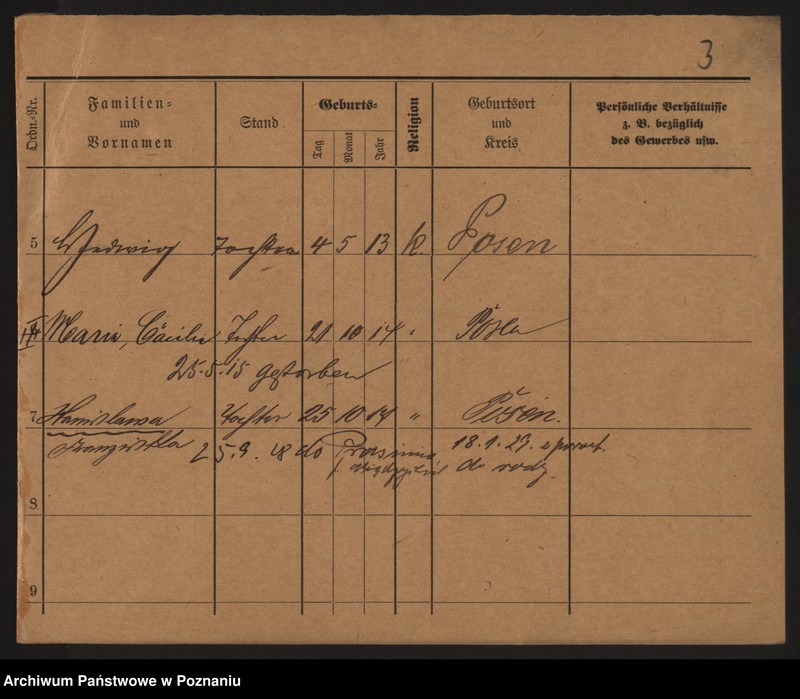 3
Ordn.-Nr. Familien- und Vornamen Stand Geburts- Tag Monat Jahr Religion Geburtsort und Kreis Persönliche Verhältnisse z. B. bezüglich des Gewerbes usw.
5 Hedwig Tochter 4 5 13 k. Posen
Maria, Cäcilie Tochter 21 10 14 " Posen
25.5.15 gestorben
7 Stanislawa Tochter 25 10 14 " Posen.
Franziska 25.9. 28 do 18.1.29. z powrot.
do rodz.
8
9
Archiwum Państwowe w Poznaniu